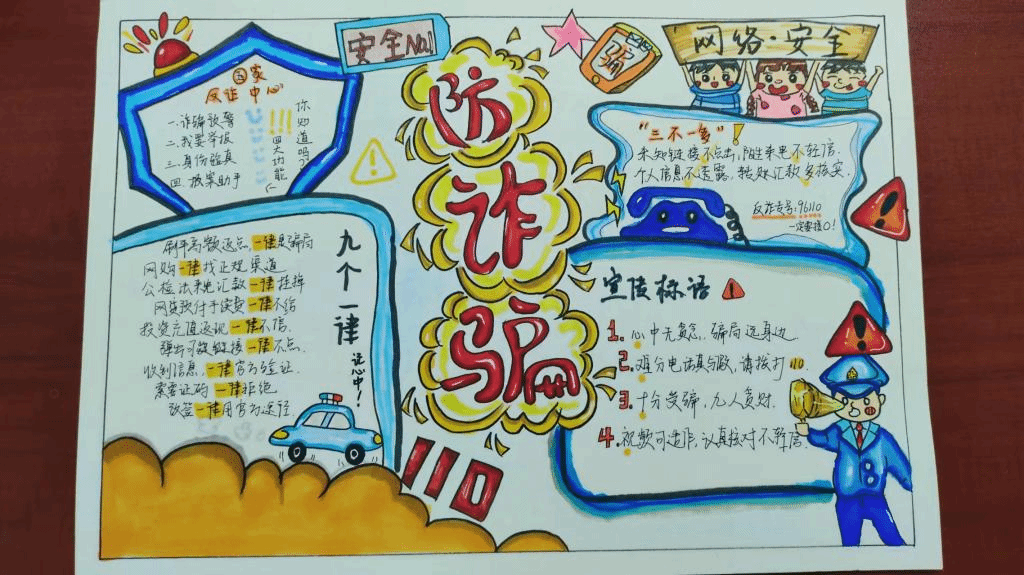 安全No.1
防诈骗
骗
网络·安全
国家
反诈中心
一.诈骗预警
二.我要举报
三.身份验真
四.报案助手
你知道吗?
四大功能
!!!
"三不一多"!
未知链接不点击,陌生来电不轻信.
个人信息不透露,转账汇款多核实.
反诈专号:96110
一定要接哦!
九个一律
记心中!
刷单高额返点一律是骗局
网购一律找正规渠道
公检法来电汇款一律挂掉
网贷预付手续费一律不给
投资充值返现一律不信.
弹出可疑链接一律不点.
收到信息,一律官方验证.
索要证码一律拒绝.
改签一律用官方途径
宣传标语
1.心中无贪念,骗局远身边.
2.难分电话真与假,请拨打110
3.十分受骗,九人贪财.
4.视频可造作,认真核对不轻信.
110